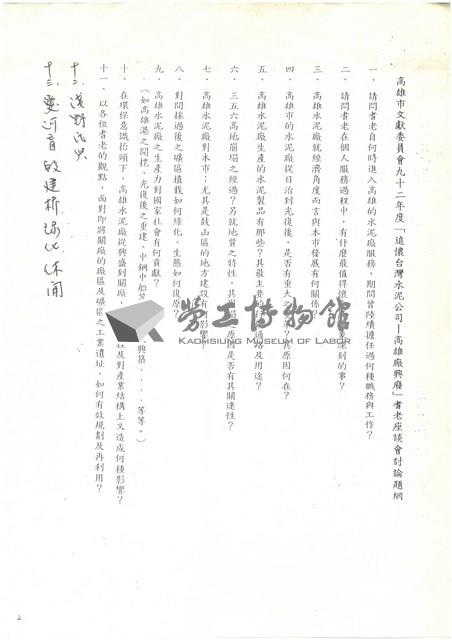 高雄市文獻委員會九十二年度「追懷台灣水泥公司—高雄廠興廢」耆老座談會討論題綱
一、請問耆老自何時進入高雄的水泥廠服務，期間曾陸續擔任過何種職務與工作？
二、請問耆老在個人服務過程中，有什麼最值得懷 深刻的事？
三、高雄水泥廠就經濟角度而言與本市發展有何關係？
四、高雄市的水泥廠從日治到光復後，是否有重大 革？其原因何在？
五、高雄水泥廠生產的水泥製品有那些？其最主要的 通路及用途？
六、三五六高地崩塌之經過？另就地質之特性，其 原因是否有其關連性？
七、高雄水泥廠對本市；尤其是鼓山區的地方建設有 影響？
八、對開採過後之礦區植栽如何綠化、生態如何復原？
九、高雄水泥廠之生產力對國家社會有何貢獻？
（如高雄港之開挖、光復後之重建、中鋼中船等 興築．．．等等。）
十、在環保意識抬頭下，高雄水泥廠從興盛到關廠， 及對產業結構上又造成何種影響？
十一、以各位耆老的觀點，面對即將關廠的廠區及礦區之工業遺址，如何有效規劃及再利用？
十二、淺野
十三、愛河
勞工博物館
KAOHSIUNG MUSEUM OF LABOR
2